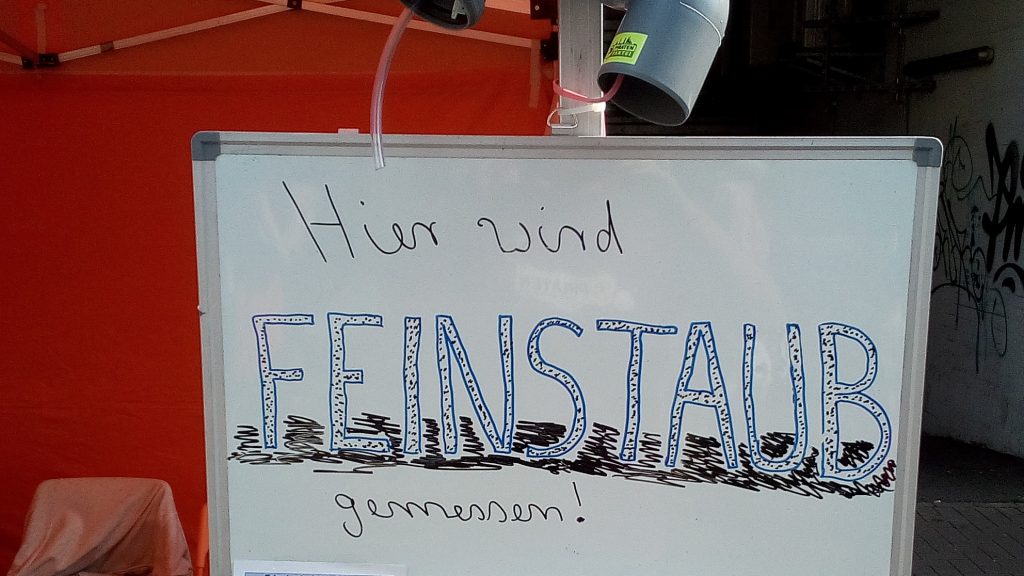 PIRATEN
Hier wird
FEINSTAUB
gemessen!